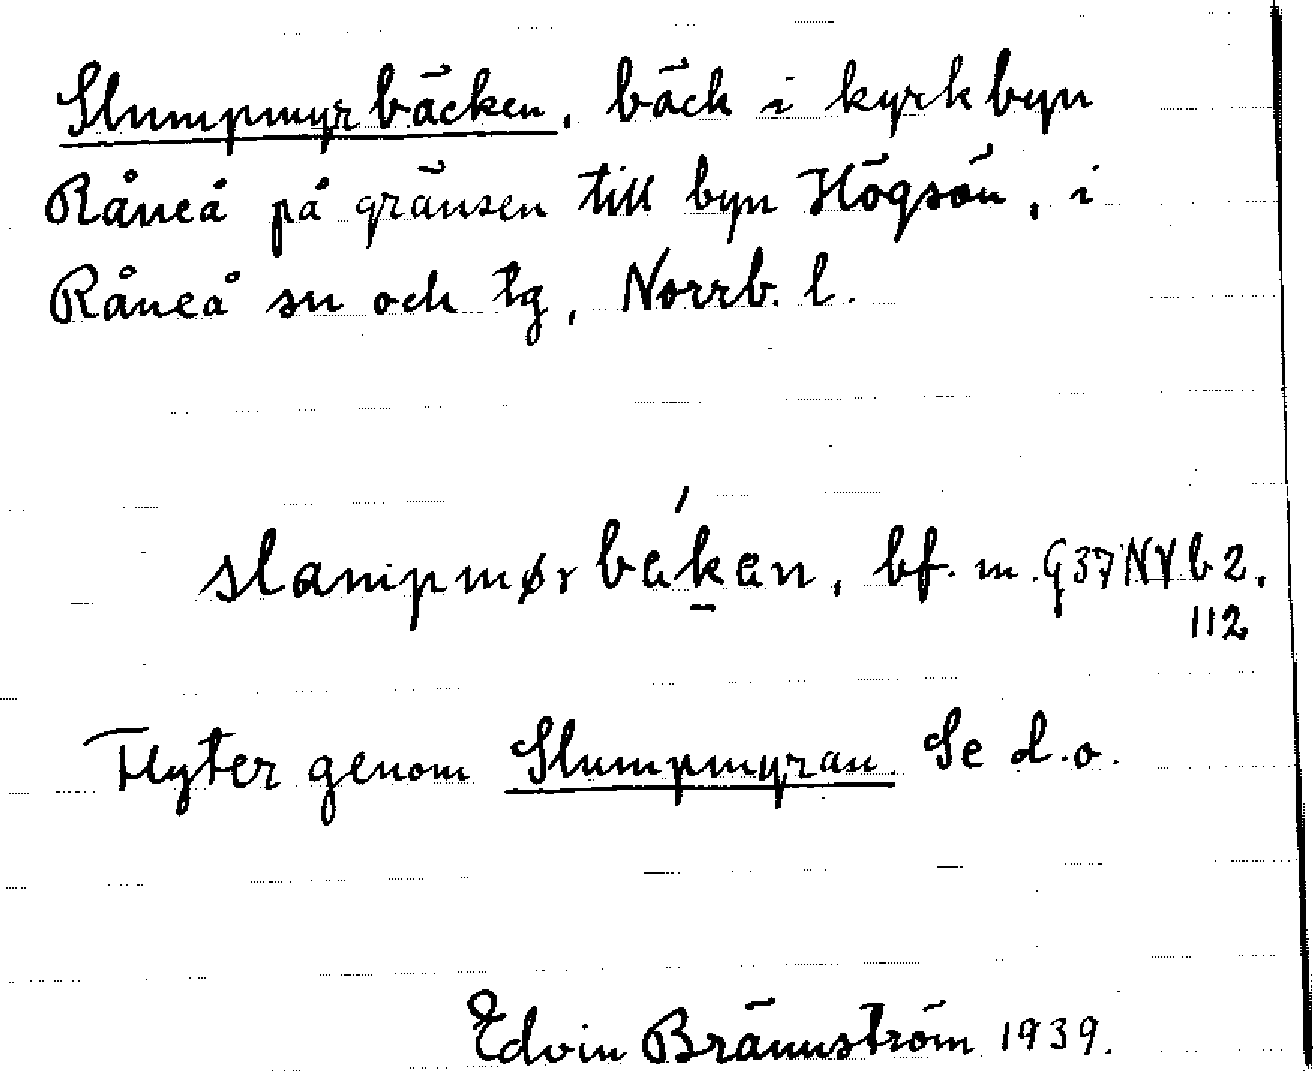 Slumpmyrbäcken, bäck i kyrkbyn
Råneå på gränsen till byn Högsön, i
Råneå sn och tg, Norrb. l.
slampmørbékan, bf. m. G37NVb2.
112
Flyter genom Slumpmyran Se d.o.
Edvin Brännström 1939.